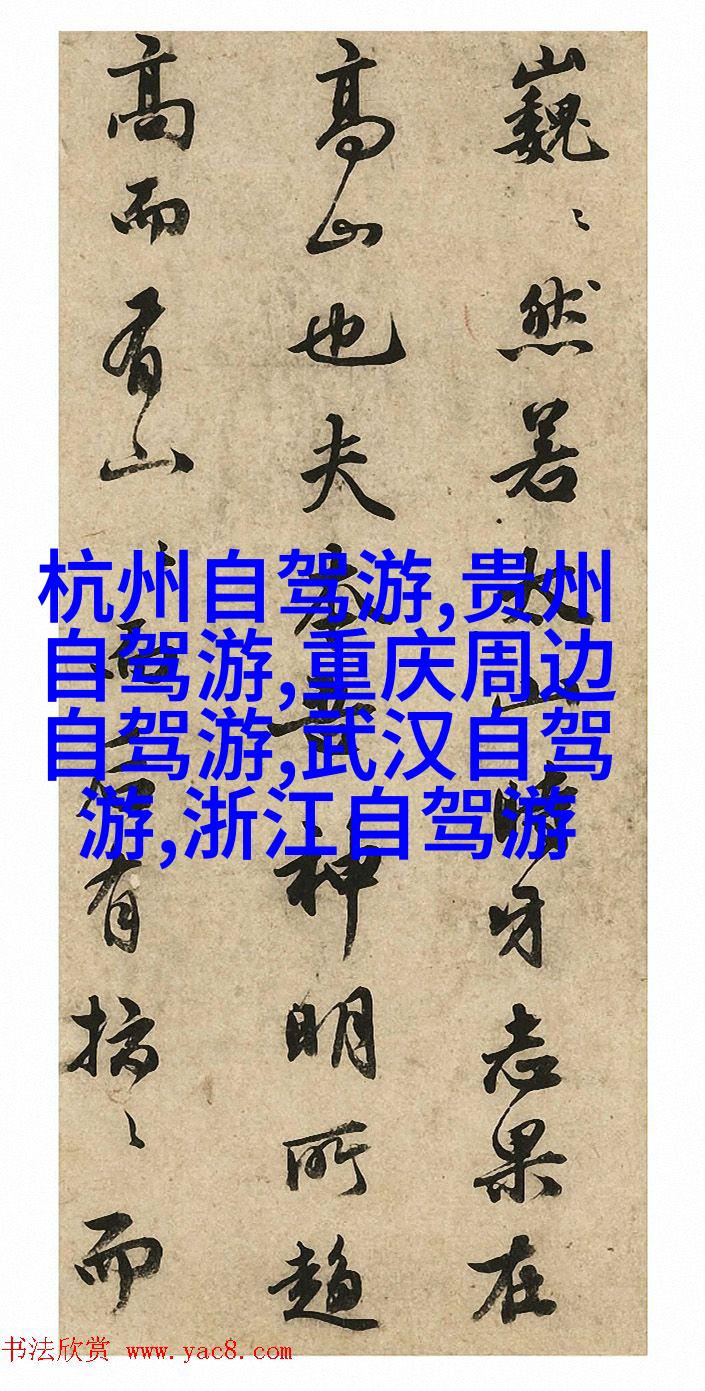 杭州自驾游,贵州
自驾游,重庆周边
自驾游,武汉自驾
游,浙江自驾游
巍〻然若太山時牙志果在
高山也夫神明所趨
高而有山有而
书法欣赏 www.yac8.com